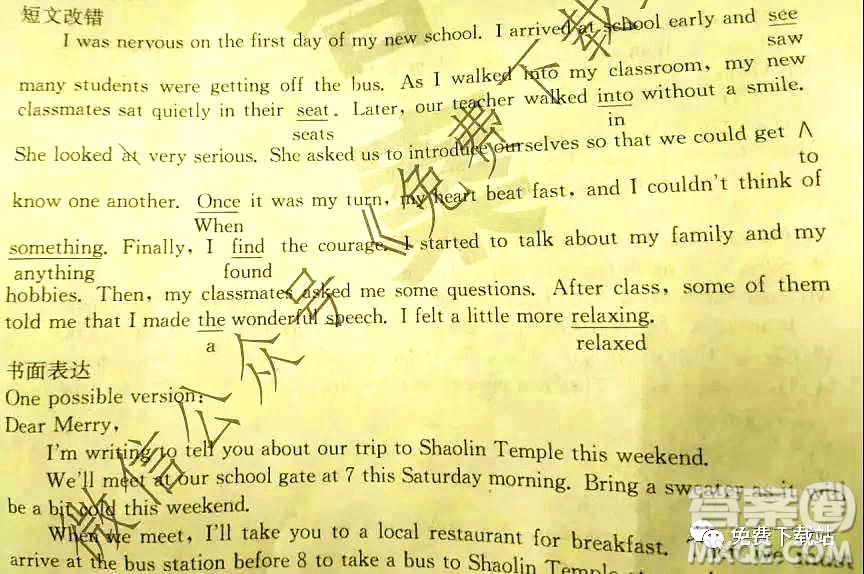 短文改错
I was nervous on the first day of my new school. I arrived at school early and see
saw
many students were getting off the bus. As I walked into my classroom, my new
classmates sat quietly in their seat. Later, our teacher walked into without a smile.
seats in
She looked at very serious. She asked us to introduce ourselves so that we could get ∧
to
know one another. Once it was my turn, my heart beat fast, and I couldn't think of
When
something. Finally, I find the courage. I started to talk about my family and my
anything found
hobbies. Then, my classmates asked me some questions. After class, some of them
told me that I made the wonderful speech. I felt a little more relaxing.
a relaxed
书面表达
One possible version:
Dear Merry,
I'm writing to tell you about our trip to Shaolin Temple this weekend.
We'll meet at our school gate at 7 this Saturday morning. Bring a sweater as it will
be a bit cold this weekend.
When we meet, I'll take you to a local restaurant for breakfast. must
arrive at the bus station before 8 to take a bus to Shaolin Temple
微信公众号《免费下载
答案
答案圈
MXQE.COM
免费下载站